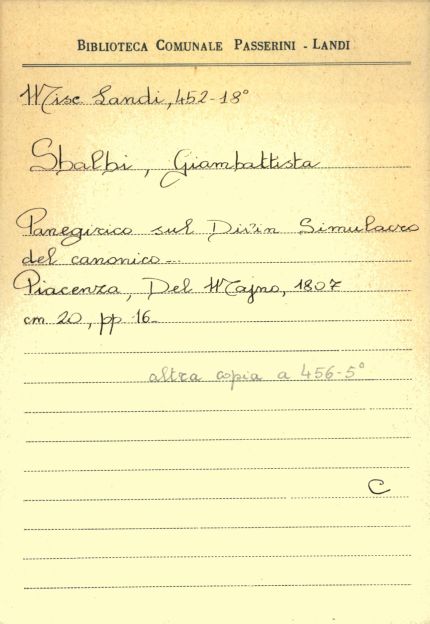 BIBLIOTECA COMUNALE PASSERINI - LANDI
Misc Landi, 452-18°
Sbalbi, Giambattista
Panegirico sul Divin Simulacro
del canonico...
Piacenza, Del Majno, 1807
cm 20, pp 16.
altra copia a 456-5°
C